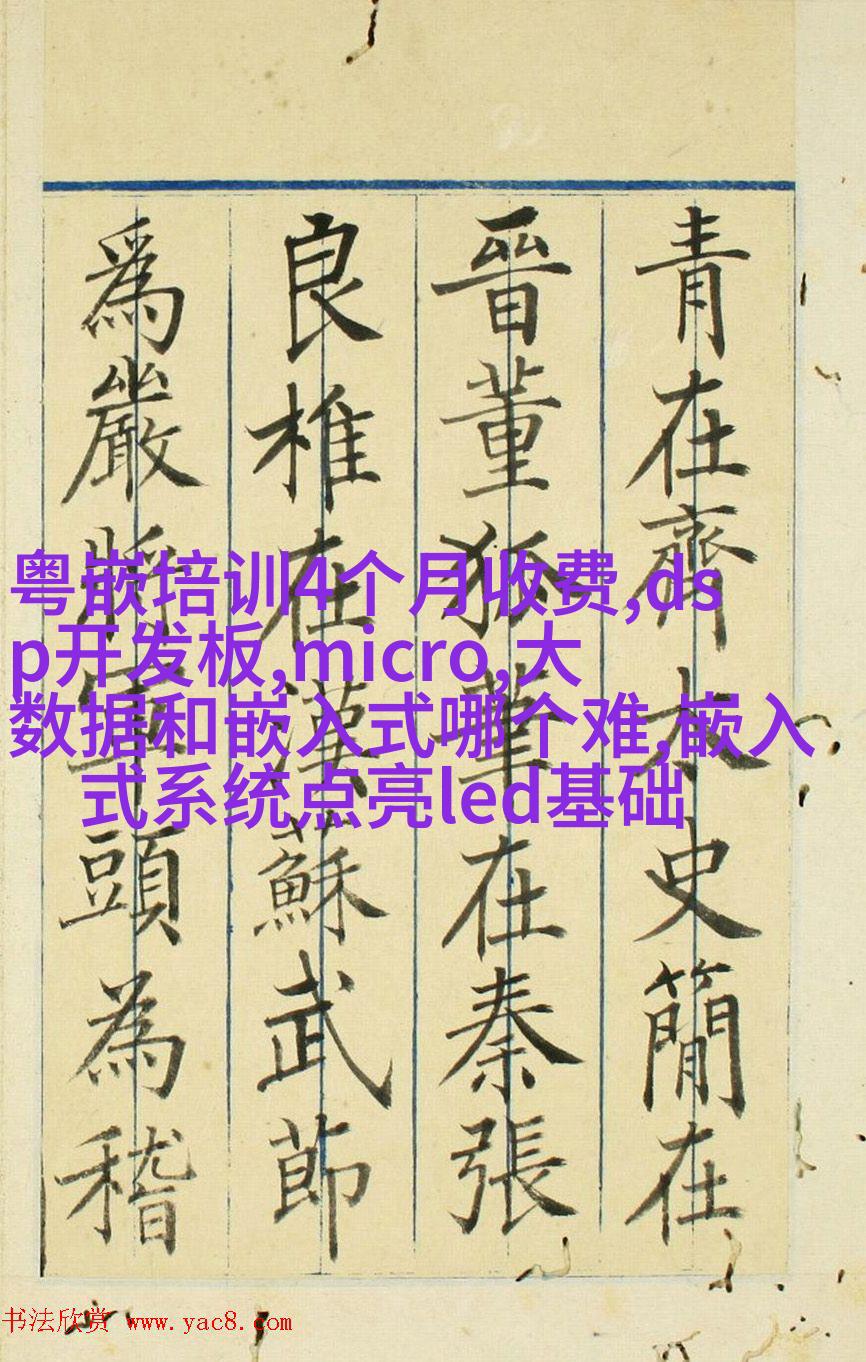 青在齊太史簡在
晉董狐筆在秦張
良椎在漢蘇武節
爲嚴將軍頭為嵇
粤嵌培训4个月收费,ds
p开发板,micro,大
数据和嵌入式哪个难,嵌入
式系统点亮led基础
书法欣赏 www.yac8.com